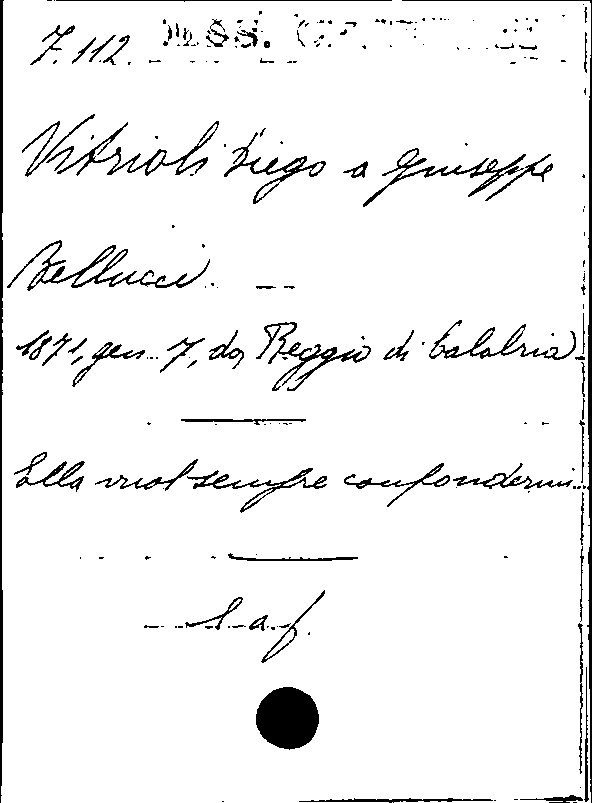 7.112. MSS.
Vitrioli Diego a Giuseppe
Bellucci.
1871, gen. 7, da Reggio di Calabria
Ella vuol sempre confondermi...
L. a. f.